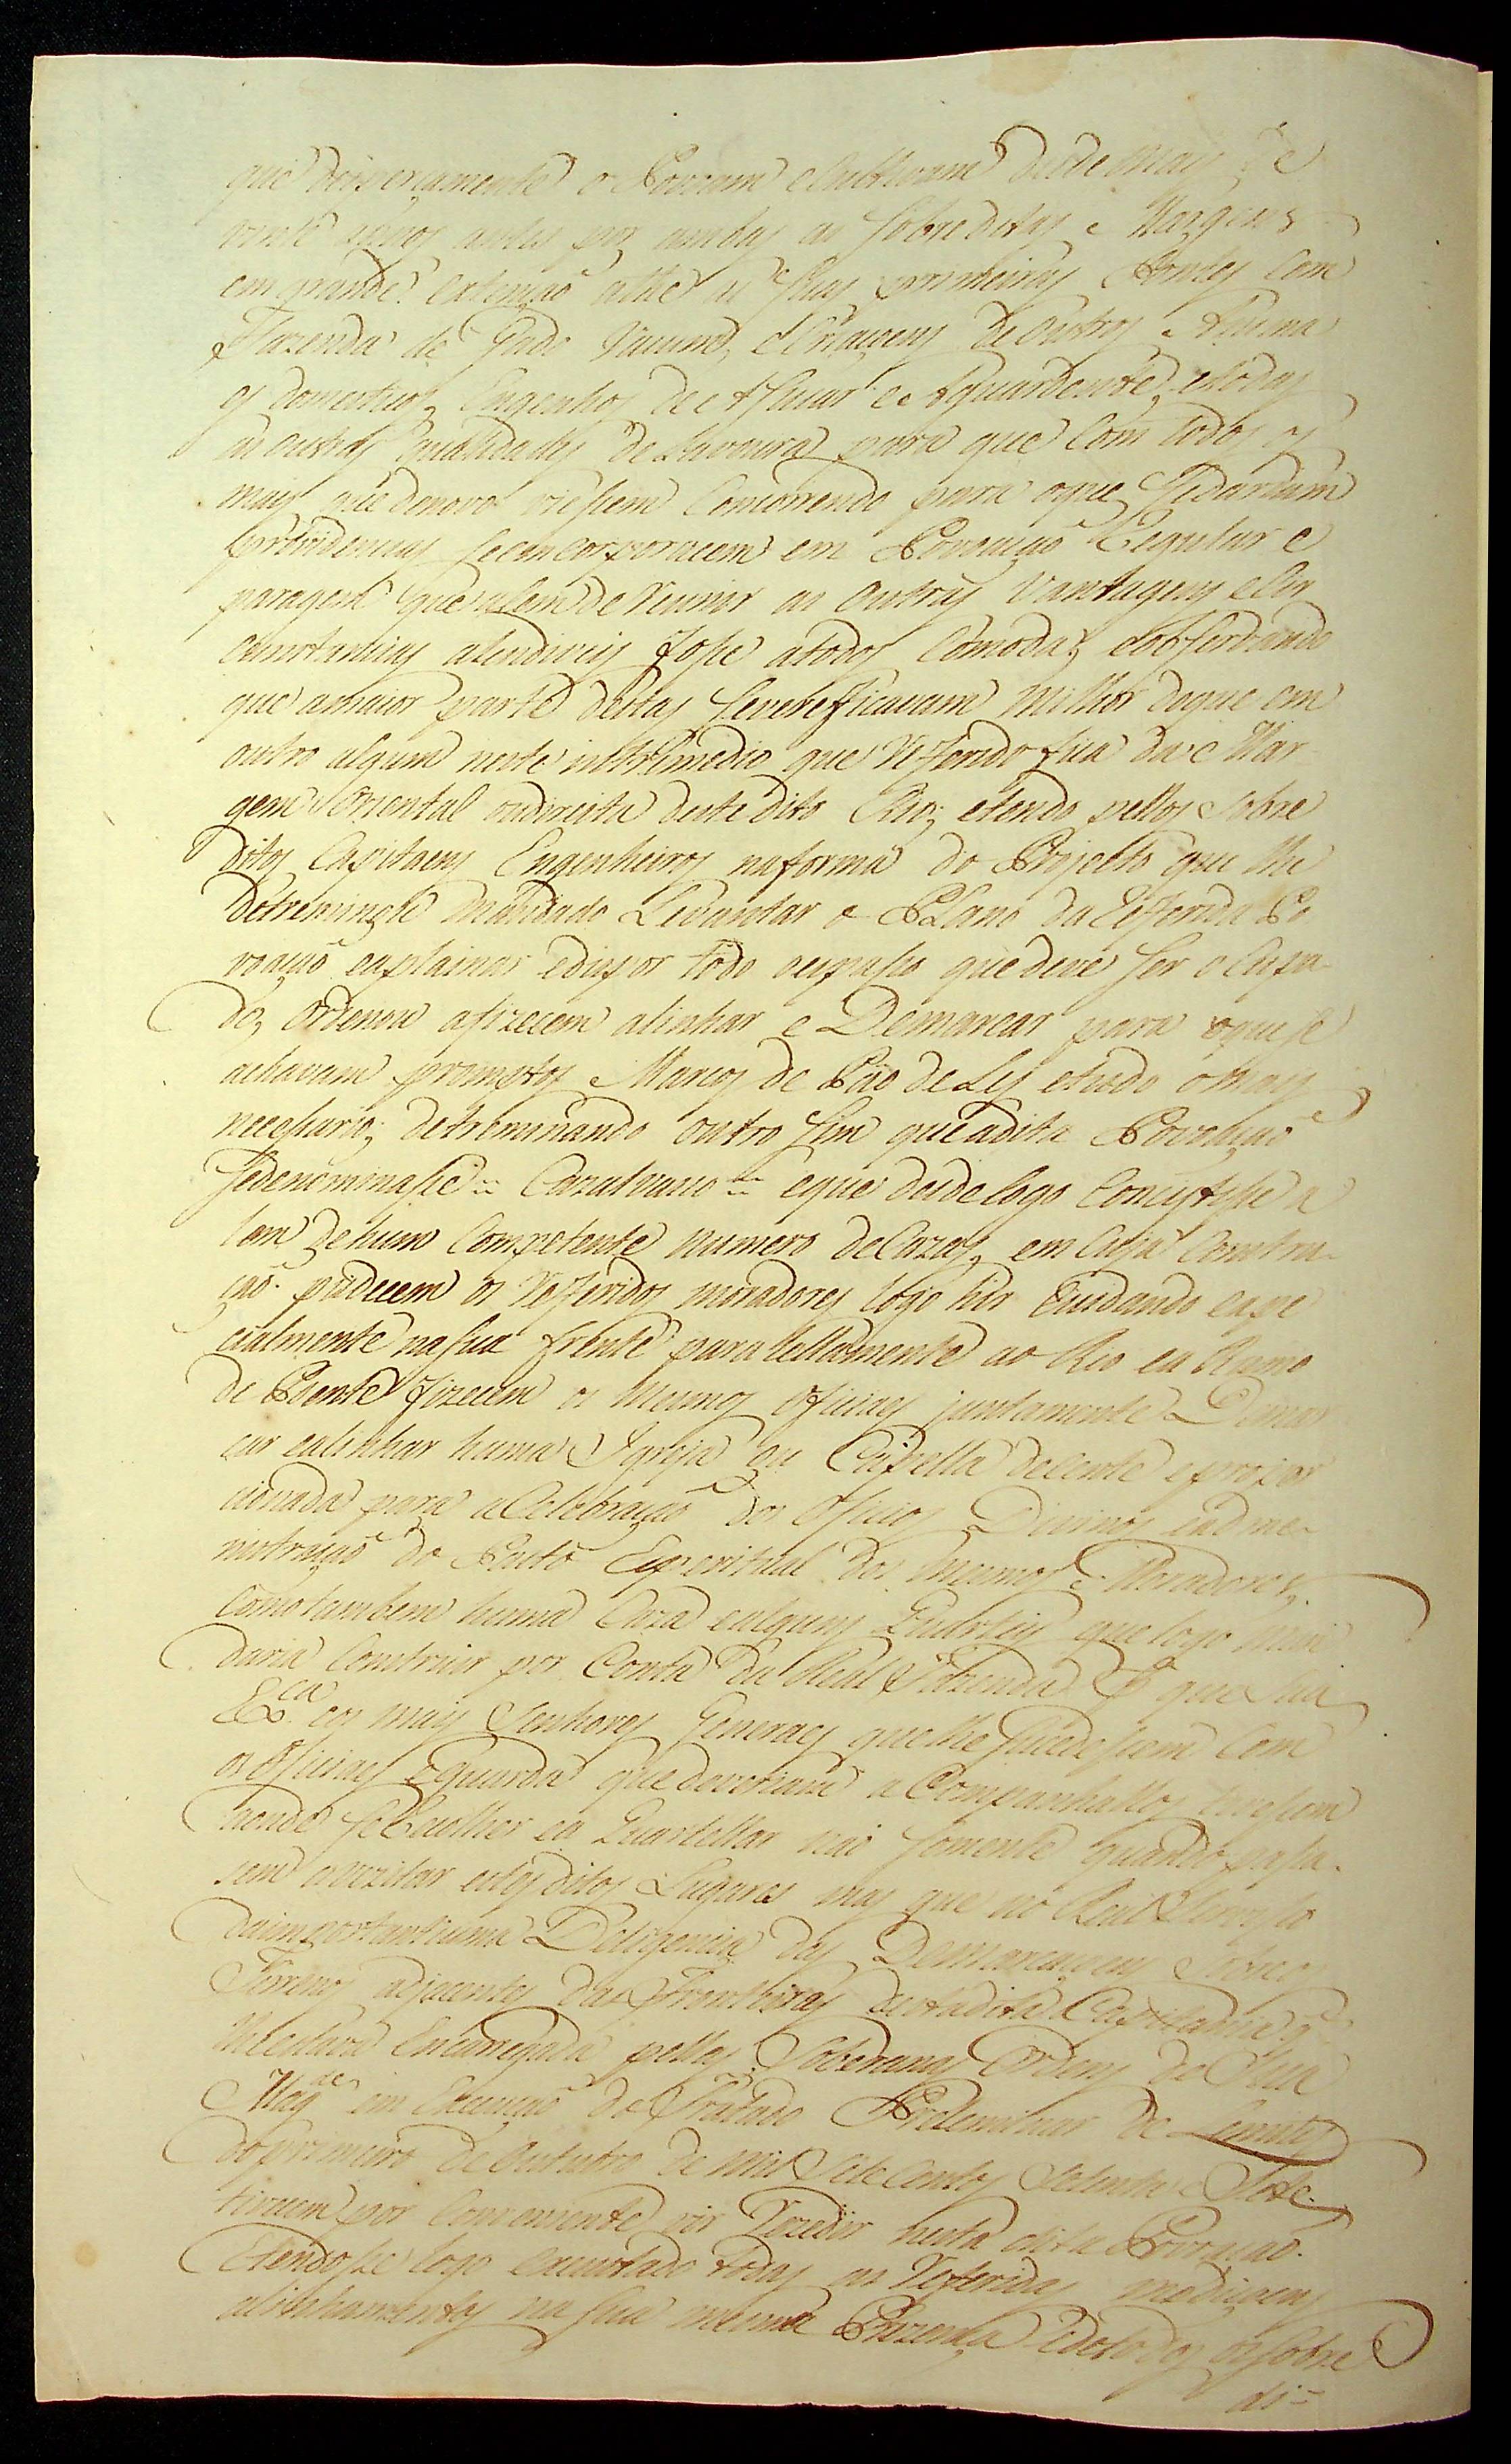 que disperçamente o Povoam e Cultivam desde mais de
vinte annos antes por ambas as sobreditas Margens
em grande extenção athe as suas primeiras Fontes com
Fazenda de Gado Vacum, e Criaçoens de outros Anima
es domesticos, Engenhos de Assucar e Aguardente, e todas
as outras qualidades de Lavoura para que com todos os
mais que de novo viessem concorrendo para o que se dariam
providencias se encorporacem em Povoação Regular e
paragem que alem de reunir as outras Vantagens e Cir
cunstancias atendiveis fosse a todos Cómoda; e observando
que a maior parte destas se vereficavam milhor do que em
outro algum neste intermedio que Referido fica da Mar
gem Oriental ou direita deste dito Rio; e tendo pellos sobre
ditos Capitaens Engenheiros na forma do Projecto que lhe
detreminou mandado Levantar o Plano da Referida Po
voação explainar e dispor todo o espasso que deve ser ocupa
do, ordenou a fizecem alinhar e Demarcar para o que se
achavam promptos Marcos de Páo de Ley e tudo o mais
necessario; detreminando outro sim que a dita Povoação
se denominasse = Cazalvasco = e que desde logo concistisse a
lem de hum Competente numero de Cazas, em cuja Constru
ção pudecem os Referidos moradores logo hir Cuidando espe
cialmente na sua frente paralellamente ao Rio e a Rumo
de Poente fizecem os mesmos Oficiaes juntamente Demar
car e alinhar huma Igreja ou Capella decente e propor
cionada para a Celebração dos Oficios Divinos e adme
nistração do Pasto Espiritual dos mesmos Moradores,
como tambem huma Caza e alguns Quarteis que logo man
daria Construir por Conta da Real Fazenda Pª que Sua
Exca e os mais Senhores Generaes que lhe sucedessem Com
os Oficiaes e guarda que deveriam acompanhallos tivessem
aonde se Recolher e a Quartellar não somente quando passa
sem a vezitar estes ditos Lugares mas que no Real Serviço
da importantissima Deligencia das Demarcaçoens sobre os
Terrenos adjacentes das Fronteiras desta dita Capitania q
lhe estava Encarregada pellas Soberanas Ordens de Sua
Magde em Execução do Tratado Preleminar de Lemites
do primeiro de Outubro de mil Sete Centos Setenta e Sete
tivecem por Conveniente vir Rezedir nesta dita Povoação.
E tendo-se logo executado todas as Referidas mediçoens
alinhamentos na sua mesma Prezença e de todos os sobre
di=